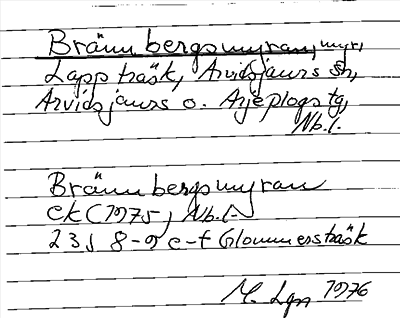 Brännbergsmyran, myr,
Lappträsk, Arvidsjaurs sn,
Arvidsjaurs o. Arjeplogs tg,
Nb.l.
Brännbergsmyran
ek (1975) Nb.l.
23J 8-9 e-f Glommersträsk
M. Lgn 1976